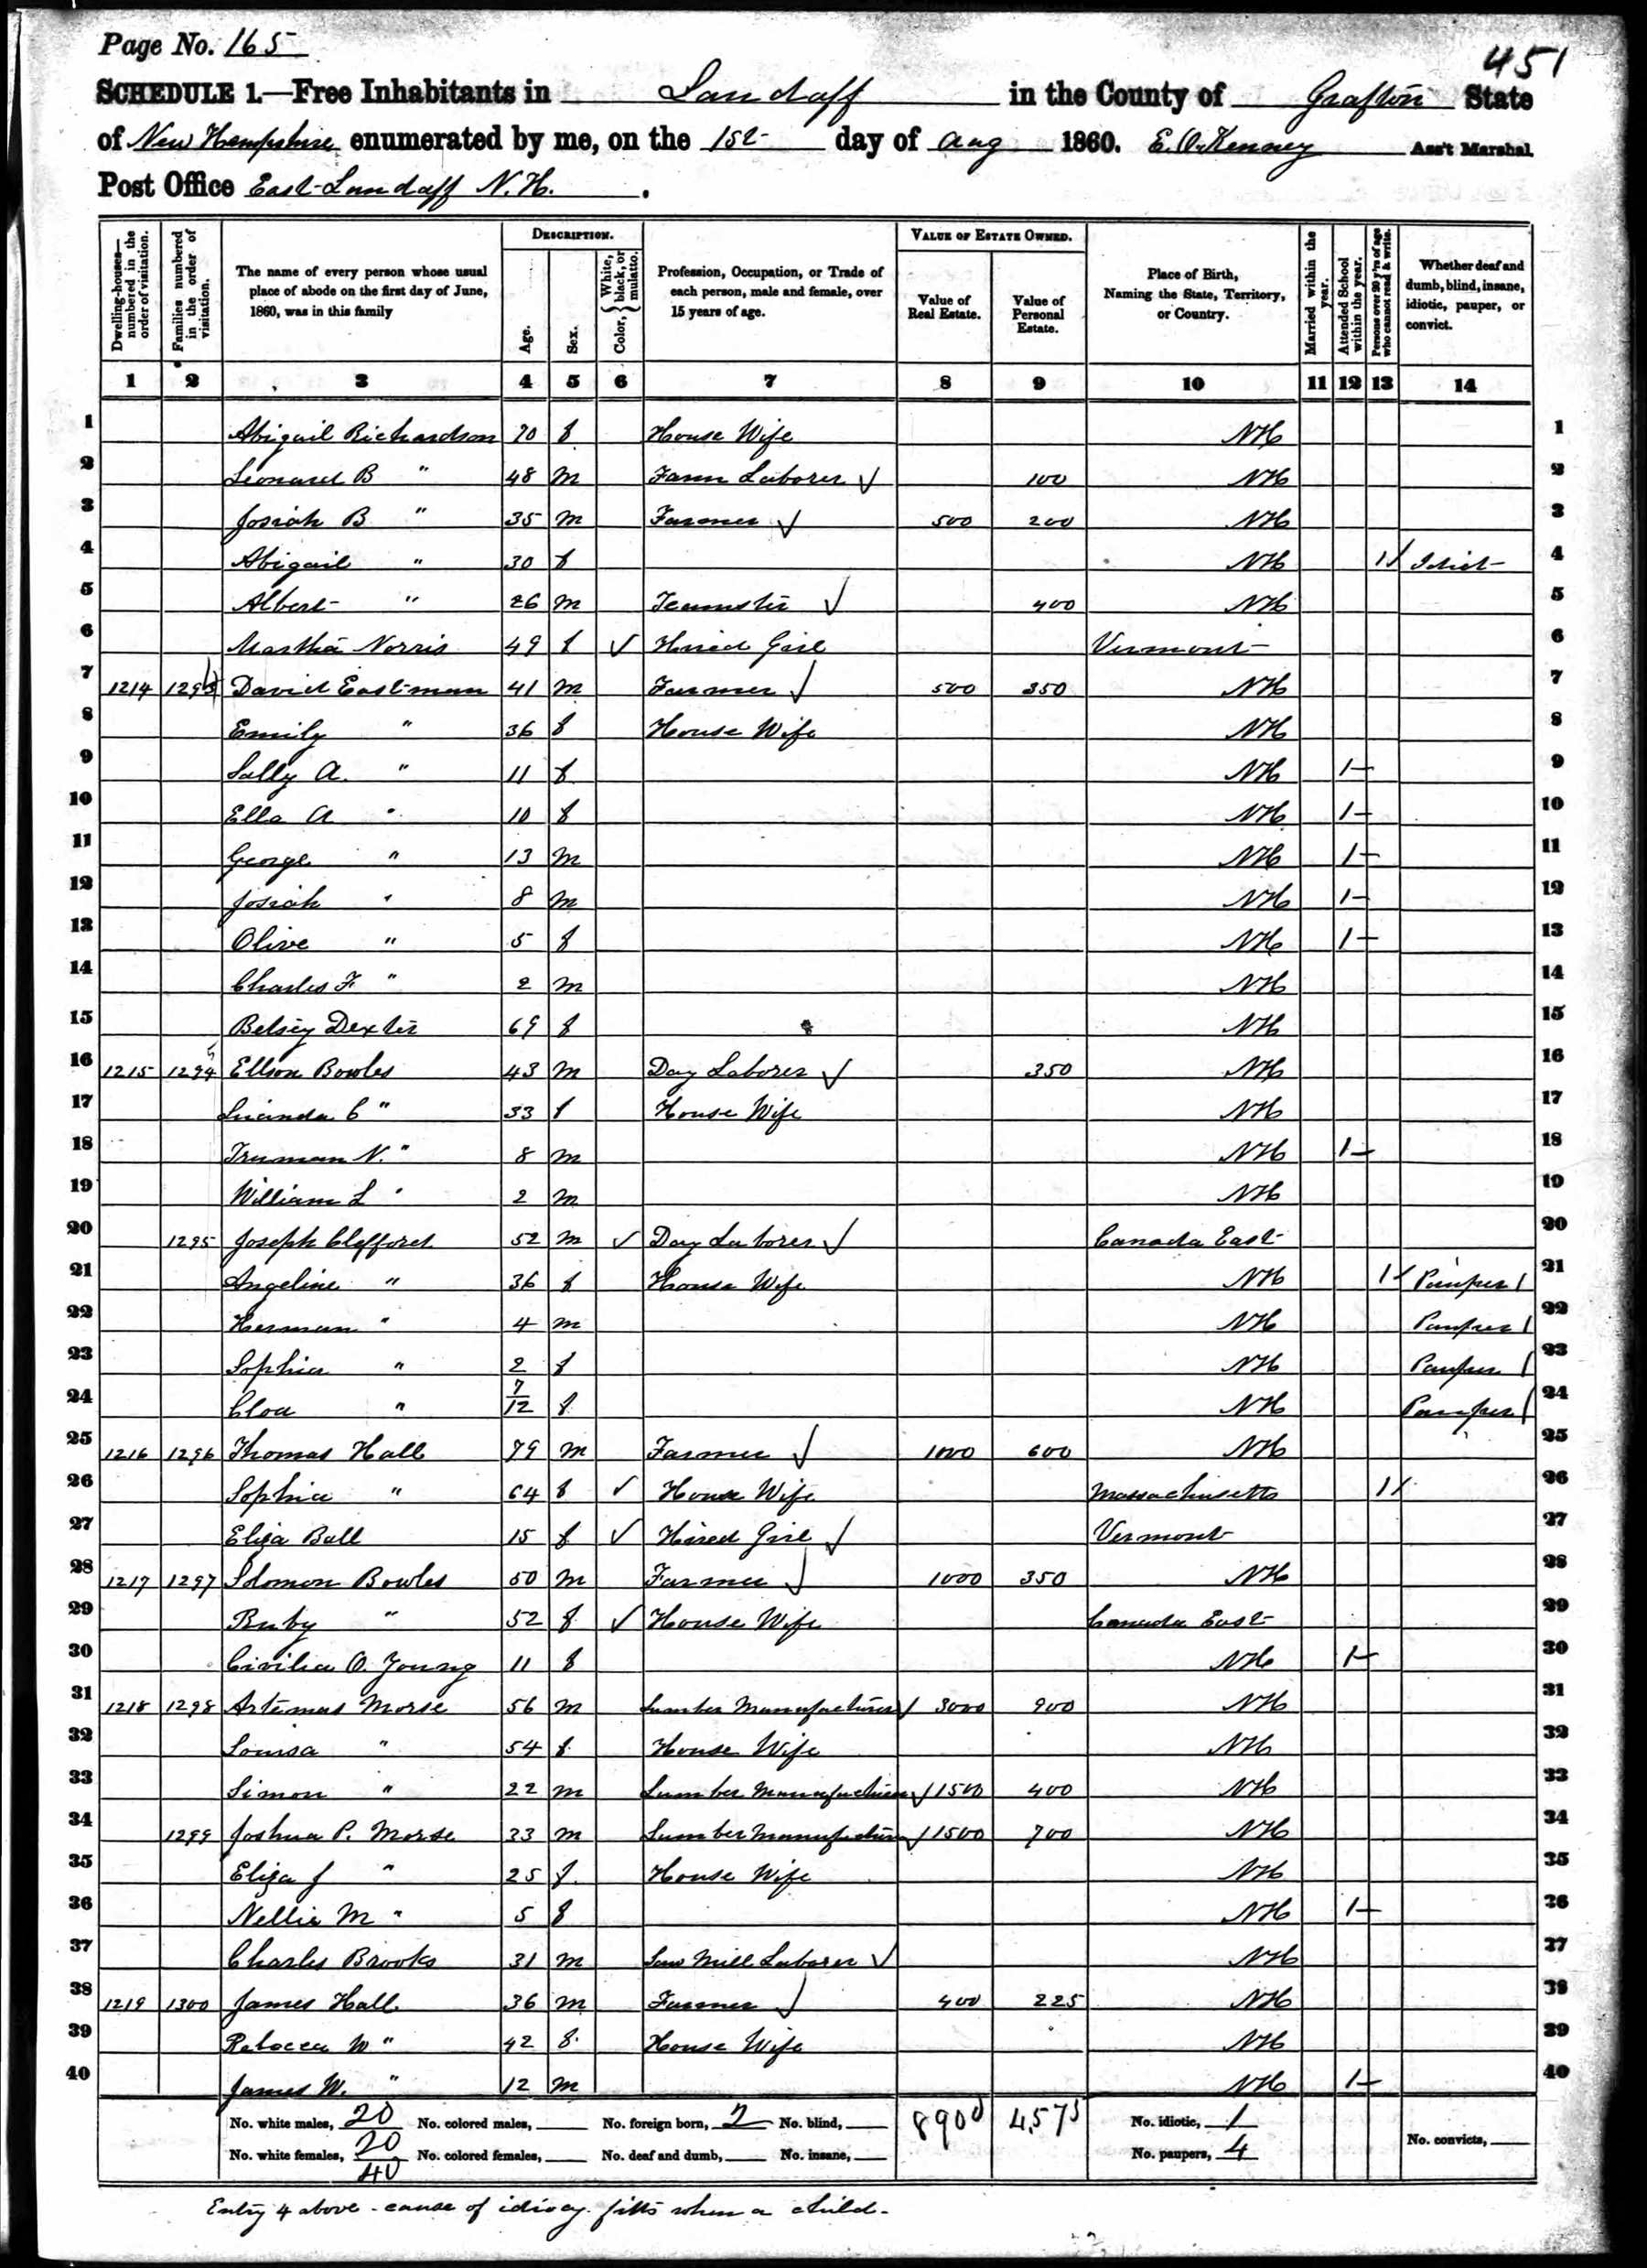 Page No. 165
451
SCHEDULE 1.—Free Inhabitants in Landaff in the County of Grafton State
of New Hampshire enumerated by me, on the 1st day of Aug 1860. E. O. Kenney Ass't Marshal.
Post Office East Landaff N.H.
Dwelling-houses—numbered in the order of visitation.
Families numbered in the order of visitation.
The name of every person whose usual place of abode on the first day of June, 1860, was in this family
DESCRIPTION.
Age.
Sex.
Color, { White, black, or mulatto.
Profession, Occupation, or Trade of each person, male and female, over 15 years of age.
VALUE OF ESTATE OWNED.
Value of Real Estate.
Value of Personal Estate.
Place of Birth, Naming the State, Territory, or Country.
Married within the year.
Attended School within the year.
Persons over 20 y'rs of age who cannot read & write.
Whether deaf and dumb, blind, insane, idiotic, pauper, or convict.
1 2 3 4 5 6 7 8 9 10 11 12 13 14
1 Abigail Richardson 70 f House Wife NH 1
2 Leonard B " 48 m Farm Laborer ✓ 100 NH 2
3 Josiah B " 35 m Farmer ✓ 500 200 NH 3
4 Abigail " 30 f NH 1/ Idiot 4
5 Albert " 26 m Teamster ✓ 400 NH 5
6 Martha Norris 49 f ✓ Hired Girl Vermont 6
7 1214 David Eastman 41 m Farmer ✓ 500 350 NH 7
8 Emily " 36 f House Wife NH 8
9 Sally A. " 11 f NH 1 9
10 Ella A " 10 f NH 1 10
11 George " 13 m NH 1 11
12 Josiah " 8 m NH 1 12
13 Olive " 5 f NH 1 13
14 Charles F " 2 m NH 14
15 Betsey Dexter 69 f NH 15
16 1215 1294 Ellson Bowles 43 m Day Laborer ✓ 350 NH 16
17 Lucinda C " 33 f House Wife NH 17
18 Truman N. " 8 m NH 1 18
19 William L " 2 m NH 19
20 1295 Joseph Clefford 52 m ✓ Day Laborer ✓ Canada East 20
21 Angeline " 36 f House Wife NH 1/ Pauper / 21
22 Herman " 4 m NH Pauper / 22
23 Sophia " 2 f NH Pauper / 23
24 Cloa " 7/12 f NH Pauper / 24
25 1216 1296 Thomas Hall 79 m Farmer ✓ 1000 600 NH 25
26 Sophia " 64 f ✓ House Wife Massachusetts 1/ 26
27 Eliza Ball 15 f ✓ Hired Girl ✓ Vermont 27
28 1217 1297 Solomon Bowles 50 m Farmer ✓ 1000 350 NH 28
29 Ruby " 52 f ✓ House Wife Canada East 29
30 Civilia O. Young 11 f NH 1 30
31 1218 1298 Artemas Morse 56 m Lumber Manufacturer ✓ 3000 900 NH 31
32 Louisa " 54 f House Wife NH 32
33 Simon " 22 m Lumber Manufacturer ✓ 1500 400 NH 33
34 1299 Joshua P. Morse 33 m Lumber Manufacturer ✓ 1500 700 NH 34
35 Eliza J " 25 f House Wife NH 35
36 Nellie M " 5 f NH 1 36
37 Charles Brooks 31 m Saw Mill Laborer ✓ NH 37
38 1219 1300 James Hall 36 m Farmer ✓ 400 225 NH 38
39 Rebecca W " 42 f House Wife NH 39
40 James W. " 12 m NH 1 40
No. white males, 20 No. colored males, No. foreign born, 2 No. blind, 8900 4,575 No. idiotic, 1
No. white females, 20 No. colored females, No. deaf and dumb, No. insane, No. paupers, 4 No. convicts,
40
Entry 4 above - cause of idiocy. fitts when a child -